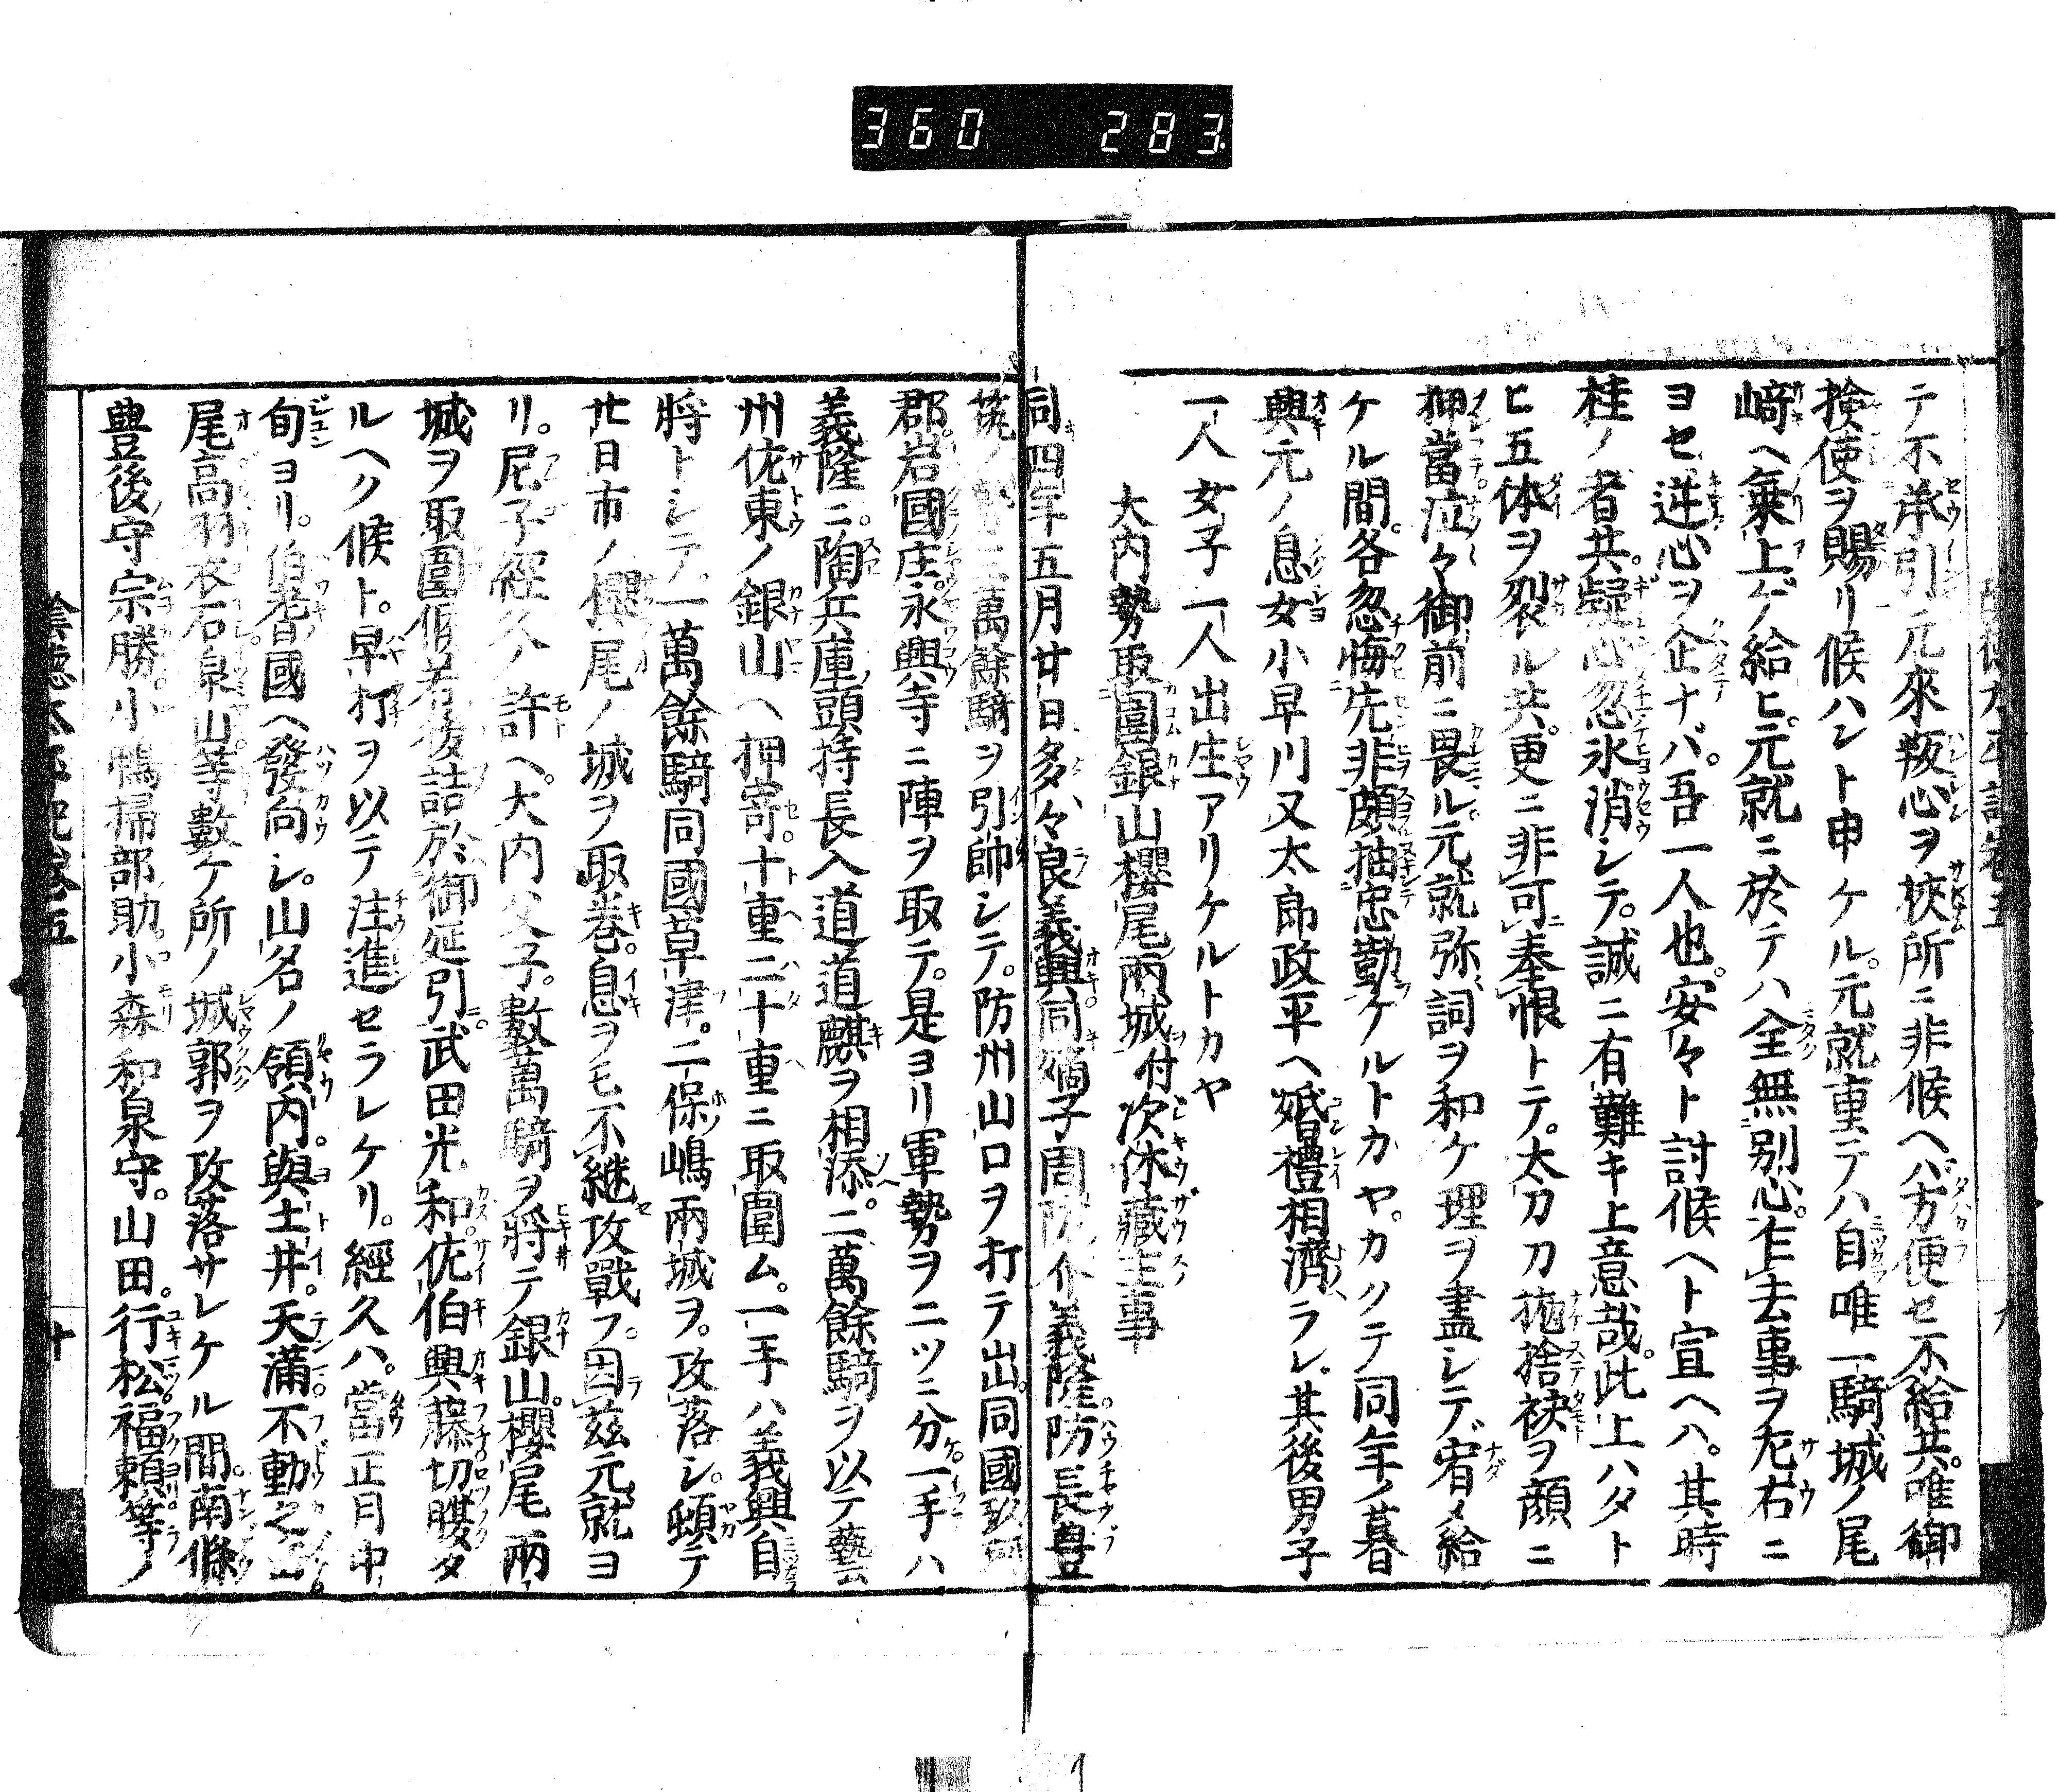 360 283
テ不承引元來叛心ヲ挾所ニ非候ヘバ方便セ不給共唯御
撿使ヲ賜リ候ハント申ケル元就重テハ自唯一騎城ノ尾
﨑ヘ乗上ゲ給ヒ元就ニ於テハ全無別心乍去事ヲ左右ニ
ヨセ逆心ヲ企ナバ吾一人也安々ト討候ヘト宣ヘハ其時
桂ノ者共疑心忽氷消シテ誠ニ有難キ上意哉此上ハタト
ヒ五体ヲ裂ル共更ニ非可奉恨トテ太刀刀抛捨袂ヲ顔ニ
押當泣々御前ニ畏ル元就弥詞ヲ和ケ理ヲ盡シテ宥メ給
ケル間各忽悔先非頗抽忠勤ケルトカヤカクテ同年ノ暮
興元ノ息女小早川又太郎政平ヘ婚禮相濟ラレ其後男子
一人女子一人出生アリケルトカヤ
大内勢取圍銀山櫻尾兩城付次休藏主事
同四年五月廿日多々良義興同嫡子周防介義隆防長豊
筑ノ勢三萬餘騎ヲ引帥シテ防州山口ヲ打テ出同國玖珂
郡岩國庄永興寺ニ陣ヲ取テ是ヨリ軍勢ヲ二ツニ分一手ハ
義隆ニ陶兵庫頭持長入道道麒ヲ相添二萬餘騎ヲ以テ藝
州佐東ノ銀山ヘ押寄十重二十重ニ取圍ム一手ハ義興自
將トシテ一萬餘騎同國草津二保嶋兩城ヲ攻落シ頓テ
廿日市ノ櫻尾ノ城ヲ取巻息ヲモ不継攻戰フ因茲元就ヨ
リ尼子經久ノ許ヘ大内父子數萬騎ヲ將テ銀山櫻尾兩
城ヲ取圍候若後詰於御延引武田光和佐伯興藤切腹タ
ルヘク候ト早打ヲ以テ注進セラレケリ經久ハ當正月中
旬ヨリ伯耆國ヘ發向シ山名ノ領内與土井天滿不動之
尾高羽衣石泉山等數ケ所ノ城郭ヲ攻落サレケル間南條
豊後守宗勝小鴨掃部助小森和泉守山田行松福頼等ノ
陰徳太平記巻五
十